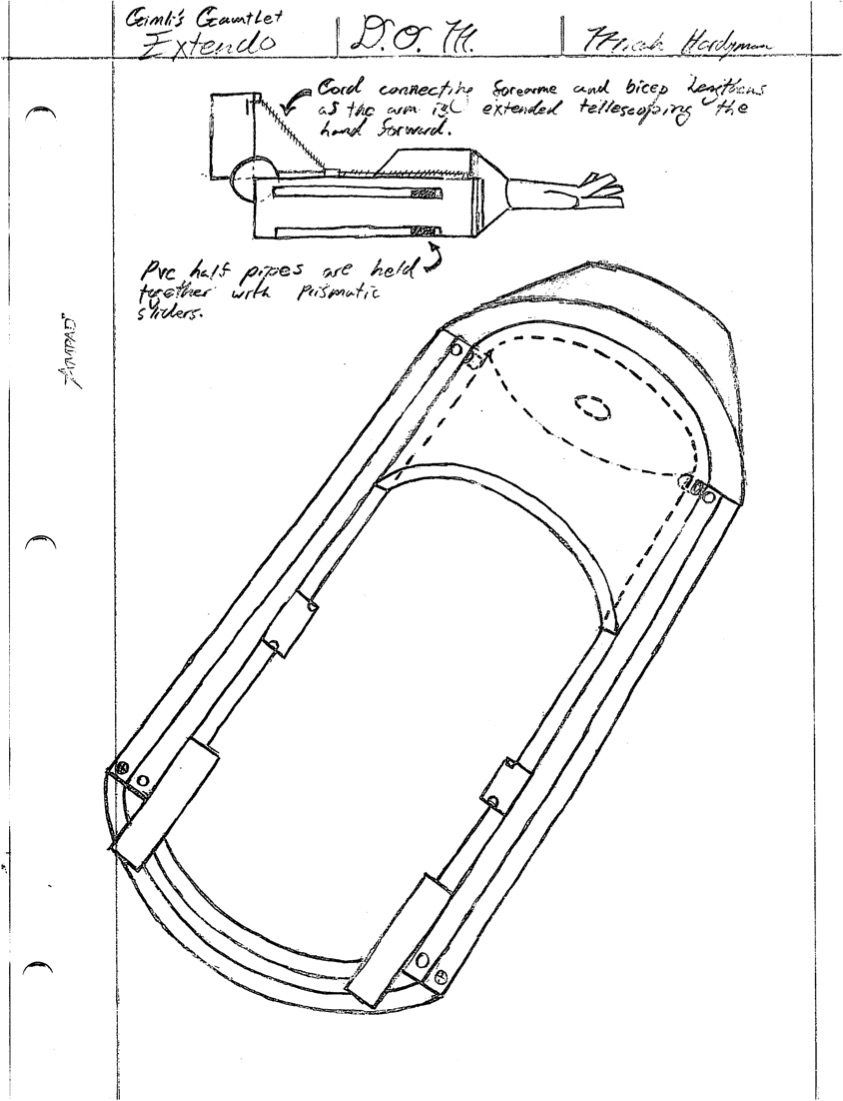 Gimli's Gauntlet
Extendo
D.O.M.
Micah Hardyman
Cord connecting forearme and bicep lengthens
as the arm is extended tellescoping the
hand forward.
Pvc half pipes are held
together with prismatic
sliders.
AMPAD